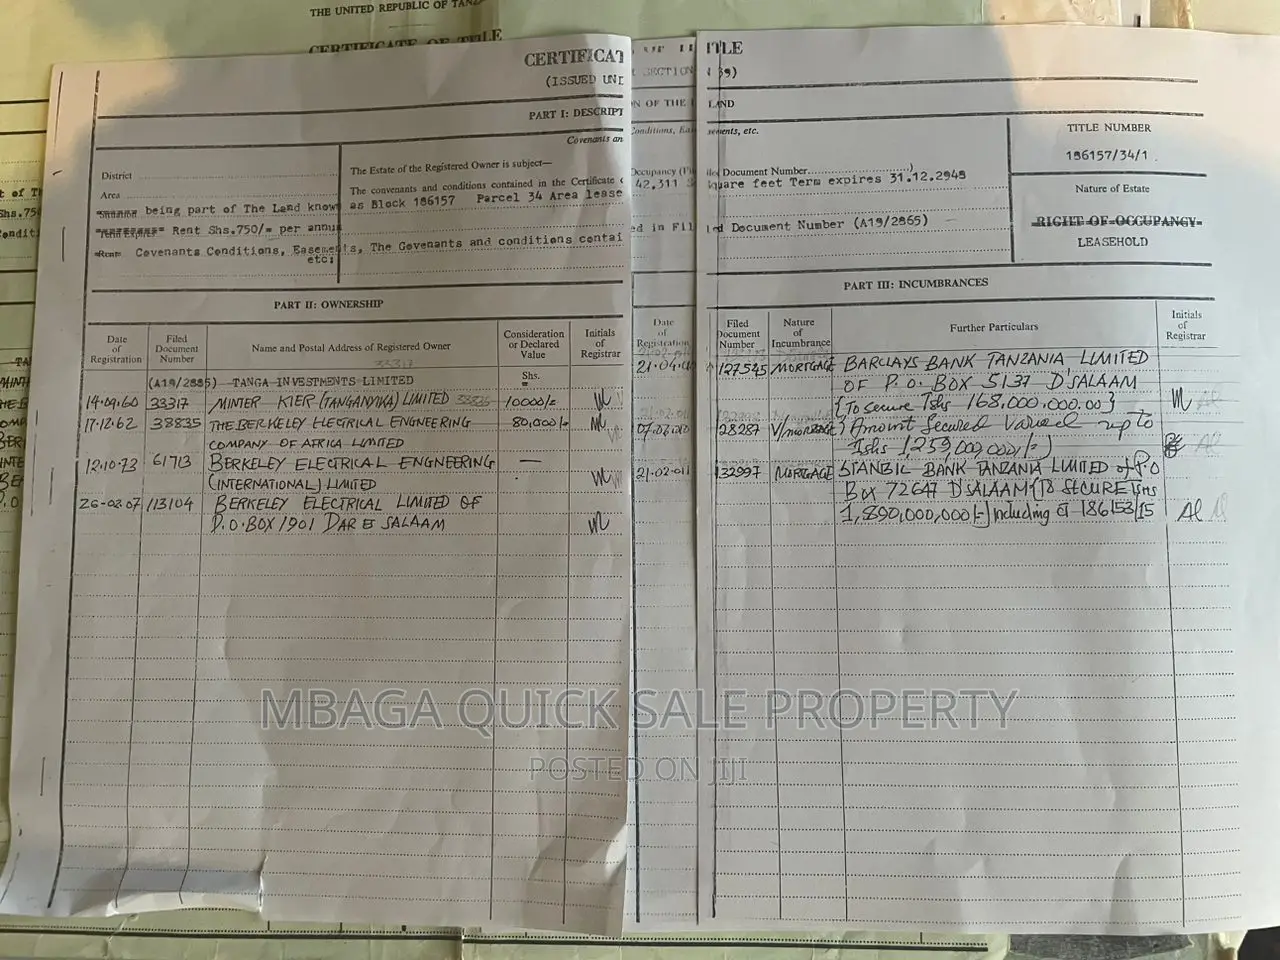 THE UNITED REPUBLIC OF TANZ
CERTIFICATE OF TITLE
CERTIFICAT
(ISSUED UND
PART I: DESCRIPT
Covenants an
District
Area
being part of The Land know
Rent Shs.750/= per annu
Rent Covenants Conditions, Easements, The Govenants and conditions contai
etc;
The Estate of the Registered Owner is subject—
The convenants and conditions contained in the Certificate o
as Block 186157 Parcel 34 Area lease
PART II: OWNERSHIP
Date of Registration
Filed Document Number
Name and Postal Address of Registered Owner
Consideration or Declared Value
Initials of Registrar
33317
Shs.
(A19/2885) TANGA INVESTMENTS LIMITED
14.09.60 33317 MINTER KIER (TANGANYIKA) LIMITED 38835 10000/=
17.12.62 38835 THE BERKELEY ELECTRICAL ENGNEERING 80,000/=
COMPANY OF AFRICA LIMITED
12.10.73 61713 BERKELEY ELECTRICAL ENGNEERING —
(INTERNATIONAL) LIMITED
26-02.07 113104 BERKELEY ELECTRICAL LIMITED OF
P.O.BOX 1901 DAR ES SALAAM
SECTION
ON OF THE
Conditions, Eas
Occupancy (Ti
42,311 S
ed in Fil
Date of Registration
ITLE
39)
LAND
ements, etc.
TITLE NUMBER
186157/34/1
Nature of Estate
RIGHT OF OCCUPANCY
LEASEHOLD
tles Document Number
quare feet Term expires 31.12.2948
ed Document Number (A19/2865)
PART III: INCUMBRANCES
Filed Document Number
Nature of Incumbrance
Further Particulars
Initials of Registrar
127545 MORTGAGE BARCLAYS BANK TANZANIA LIMITED
OF P.O. BOX 5137 D'SALAAM
{To secure Tshs 168,000,000.00}
128287 V/mortgage Amount Secured Varied up to
Tshs 1,259,000,000/-}
21.02.011 132997 MORTGAGE STANBIC BANK TANZANIA LIMITED of P.O
Box 72647 D'SALAAM {To SECURE Tshs
1,890,000,000/-} Including CT 186153/15
MBAGA QUICK SALE PROPERTY
POSTED ON JIJI